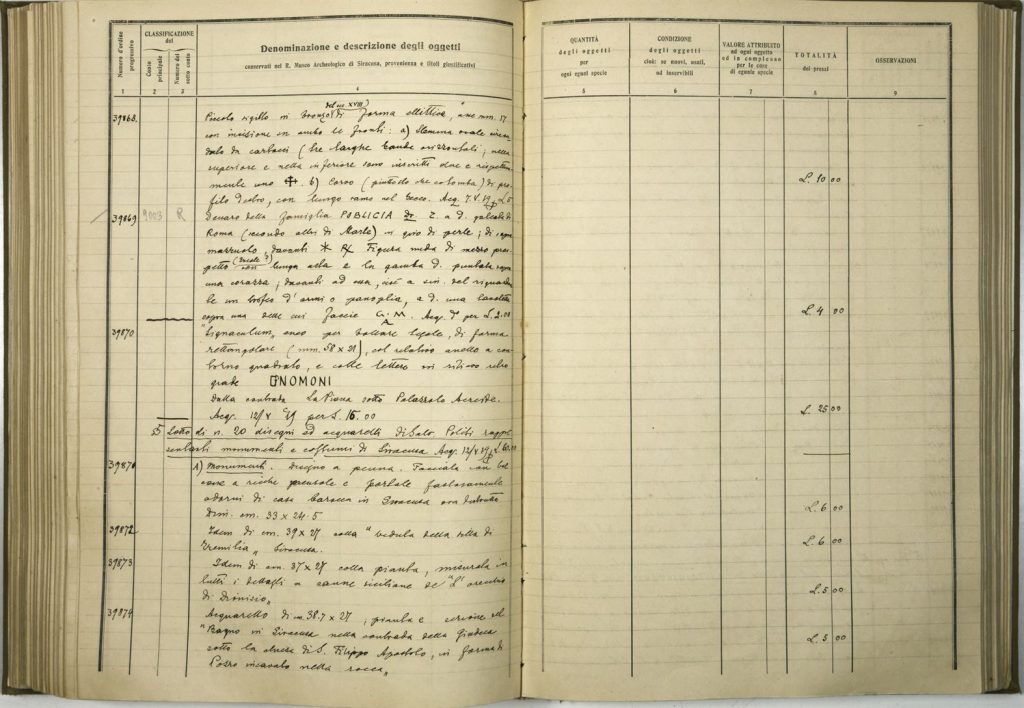 Numero d'ordine progressivo
CLASSIFICAZIONE del
Conto principale
Numero del sotto conto
Denominazione e descrizione degli oggetti
conservati nel R. Museo Archeologico di Siracusa, provenienza e titoli giustificativi
QUANTITÀ degli oggetti per ogni egual specie
CONDIZIONE degli oggetti cioè: se nuovi, usati, od inservibili
VALORE ATTRIBUITO ad ogni oggetto ed in complesso per le cose di eguale specie
TOTALITÀ dei prezzi
OSSERVAZIONI
1 2 3 4 5 6 7 8 9
del sec. XVIII
39868. Piccolo sigillo in bronzo di forma ellittica, asse mm. 17
con incisione in ambo le fronti: a) Stemma ovale
da cartocci (tre larghe bande orizzontali; nella
superiore e nella inferiore sono inscritti due e
mente uno ✣. b) Corvo (piuttosto che colomba) di pro-
L. 10 00
filo destro, con lungo ramo nel becco. Acq.
39869 R Denaro della famiglia POBLICIA Dr. Z. a d. galeata di
Roma (secondo altri di Marte) in giro di perle; di sopra
davanti Figura nuda di mezzo pros-
petto lunga asta e la gamba d. puntata sopra
una corazza; davanti ad essa, cioè a sin. del riguardan-
te un trofeo d'armi o panoplia, a d. una
sopra una delle cui faccie Acq. per L. 2.00
L. 4 00
39870 "Signaculum" eneo per bollare tegole, di forma
rettangolare (mm. 58 x 21), col relativo anello a con-
torno quadrato, e colle lettere in rilievo retro
grade GNOMONI
Dalla contrada La Piana sotto Palazzolo Acreide.
L. 25 00
Acq. per L. 15.00
Lotto di n. 20 disegni ed acquarelli di Salv. Politi rappre-
sentanti monumenti e costumi di Siracusa Acq.
39871 1) Monumenti. Disegno a penna. Facciata con bal-
cone a ricche mensole e portale fastosamente
adorni di casa barocca in Siracusa ora distrutta
Dim. cm. 33 x 24.5
L. 6 00
39872 Idem di cm. 39 x 27 colla "veduta della
Siracusa.
L. 6 00
39873 Idem di cm. 37 x 27 colla pianta, misurata in
tutti i dettagli a canne siciliane de "L'orecchio
di Dionisio"
L. 5 00
39874 Acquarello di cm. 38.7 x 27, pianta e sezione del
"Bagno in Siracusa nella contrada della Giudeca
L. 5 00
sotto la chiesa di S. Filippo Apostolo, in forma di
Pozzo incavato nella rocca"